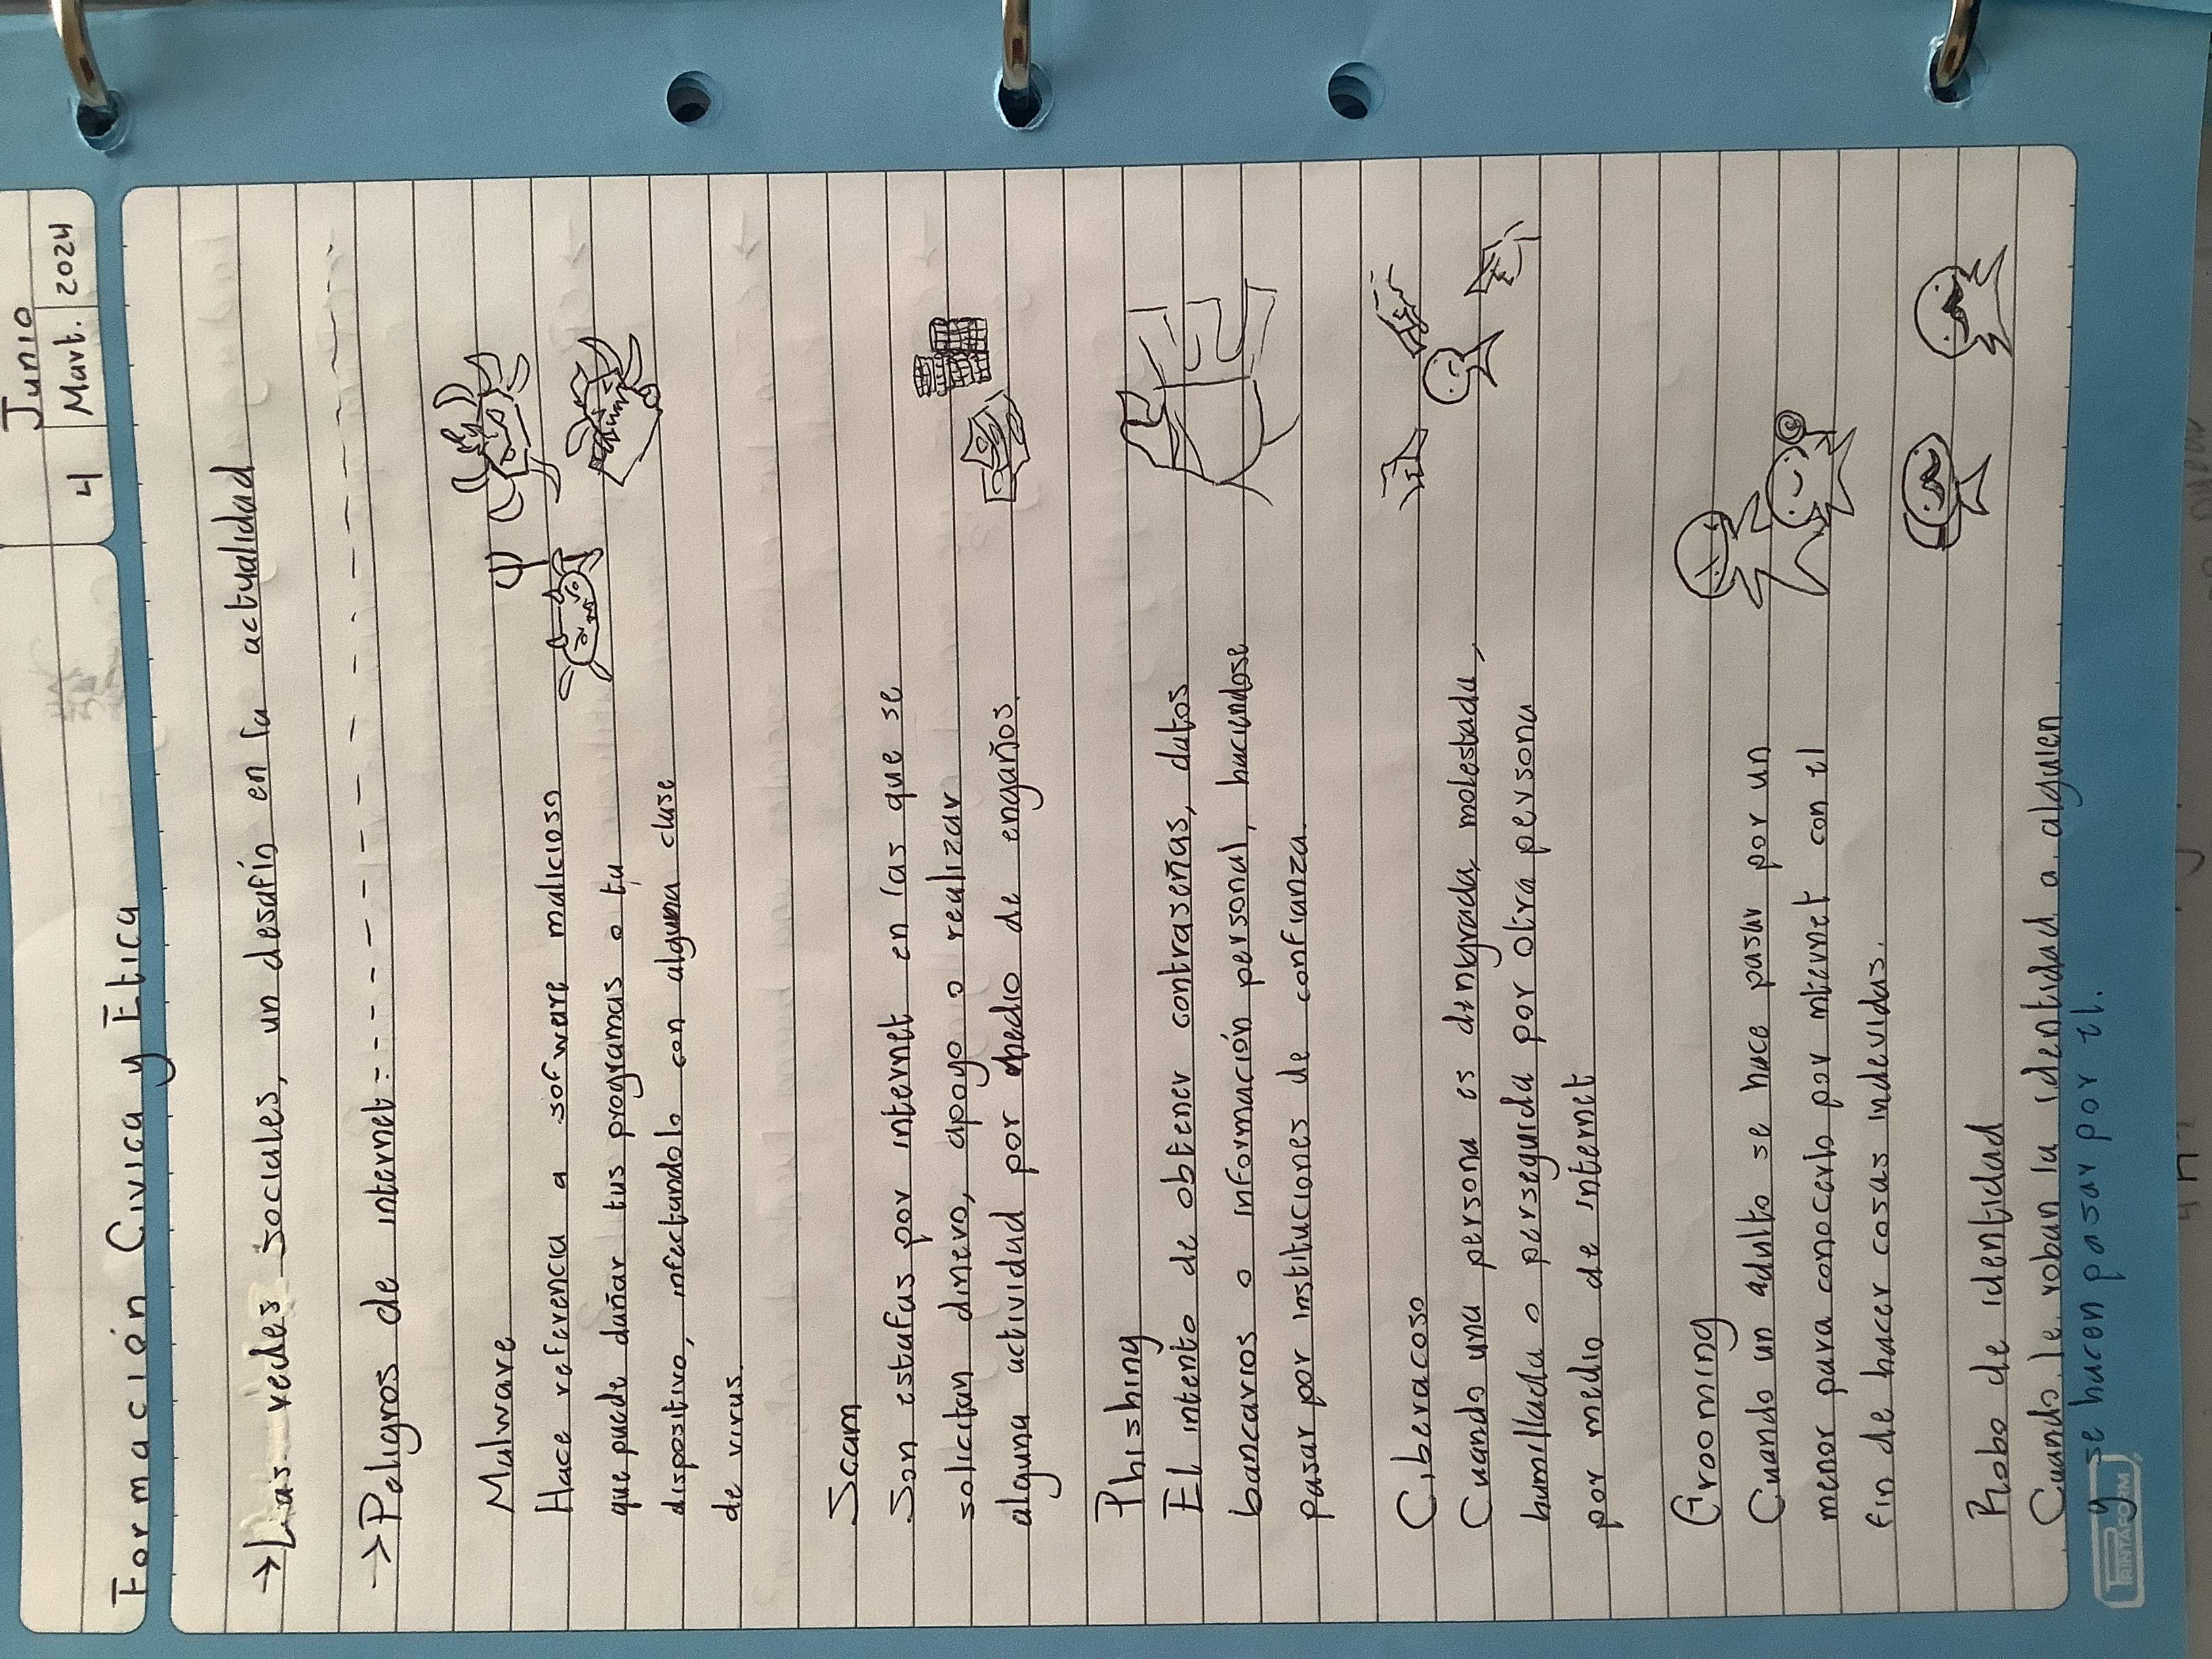 Junio
4 Mart. 2024
Formación Civica y Etica
→Las redes sociales, un desafío en la actualidad
→Peligros de internet:
Malware
Hace referencia a sofware malicioso
que puede dañar tus programas o tu
dispositivo, infectandolo con alguna clase
de virus.
Scam
Son estafas por internet en las que se
solicitan dinero, apoyo o realizar
alguna actividad por medio de engaños.
Phishing
El intento de obtener contraseñas, datos
bancarios o información personal, haciendose
pasar por instituciones de confianza.
Ciberacoso
Cuando una persona es dinigrada, molestada,
humillada o perseguida por otra persona
por medio de internet
Grooming
Cuando un adulto se hace pasar por un
menor para conocerlo por internet con el
fin de hacer cosas indevidas.
Robo de identidad
Cuando le roban la identidad a alguien
y se hacen pasar por el.
PRINTAFORM